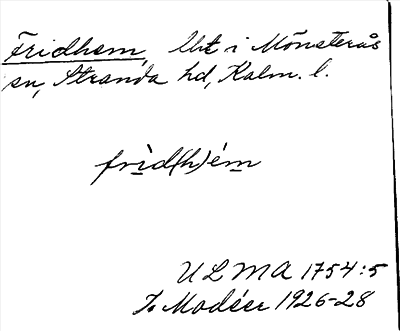 Fridhem, lht i Mönsterås
sn, Stranda hd, Kalm. l.
frìd(h)ém
ULMA 1754:5
I. Modéer 1926-28